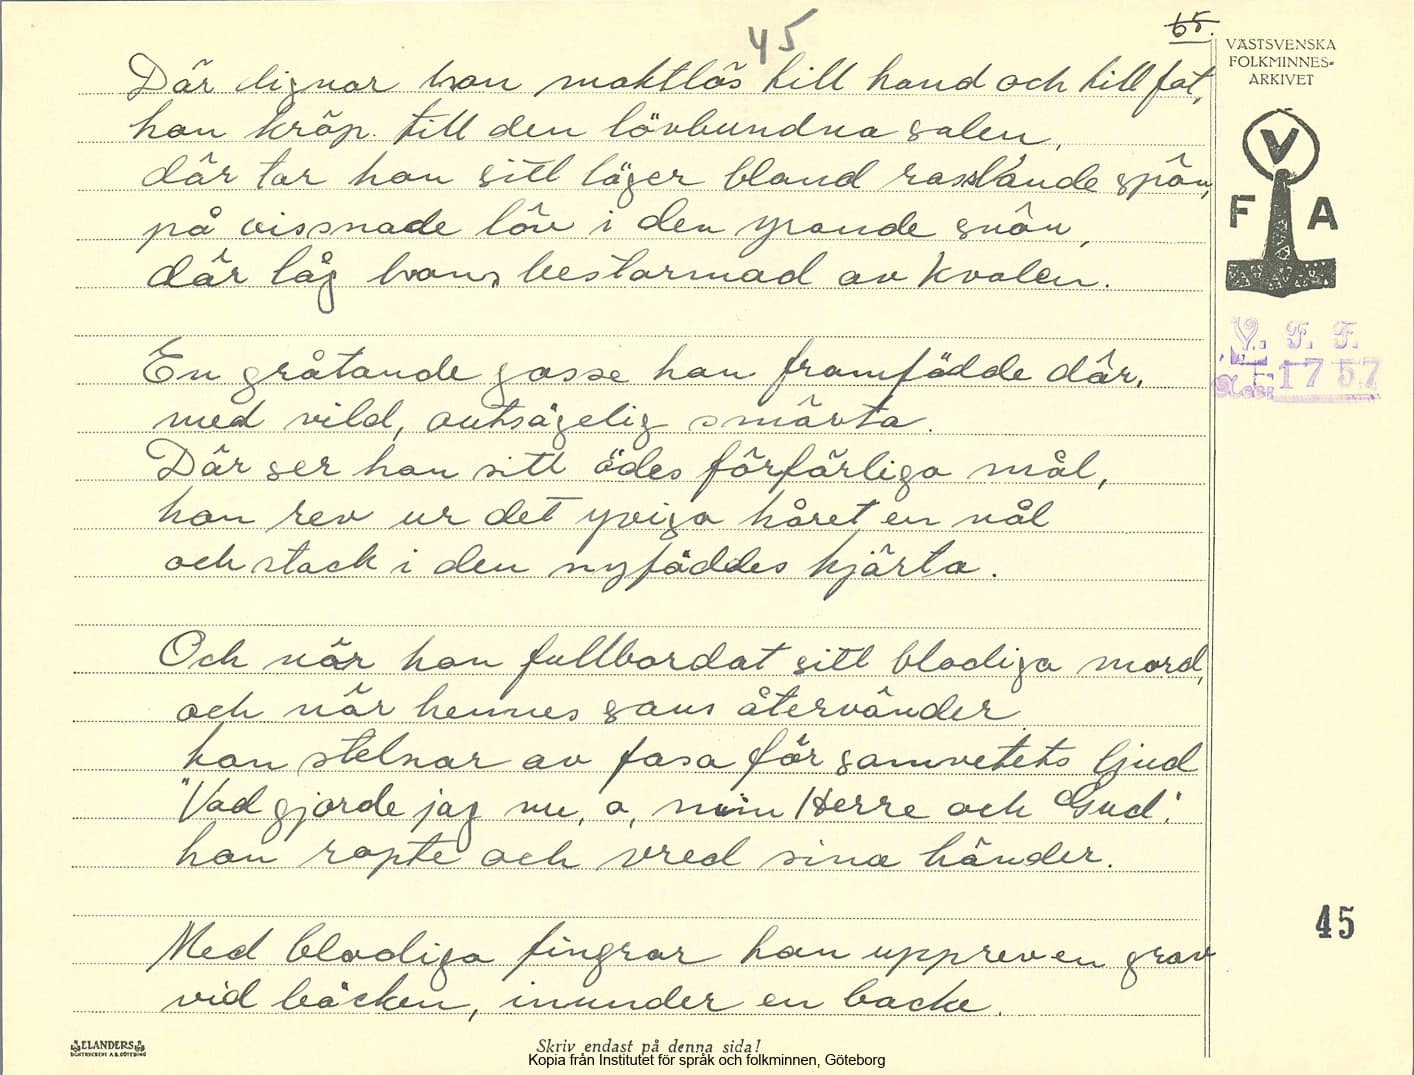 45
65.
VÄSTSVENSKA
FOLKMINNES-
ARKIVET
V
F A
V. F. F.
1757
Där dignar hon maktlös till hand och till fot,
hon kröp till den lövbundna salen,
där tar hon sitt läger bland rasslande spån,
på vissnade löv i den yrande snön,
där låg hon, bestormad av kvalen.
En gråtande gosse hon framfödde där,
med vild, outsägelig smärta.
Där ser hon sitt ödes förfärliga mål,
hon rev ur det yviga håret en nål
och stack i den nyföddes hjärta.
Och när hon fullbordat sitt blodiga mord,
och när hennes sans återvänder
hon stelnar av fasa för samvetets ljud
"Vad gjorde jag nu, o, min Herre och Gud".
hon ropte och vred sina händer.
Med blodiga fingrar hon upprev en grav
vid bäcken, inunder en backe.
45
ELANDERS
BOKTRYCKERI A.B. GÖTEBORG
Skriv endast på denna sida!
Kopia från Institutet för språk och folkminnen, Göteborg